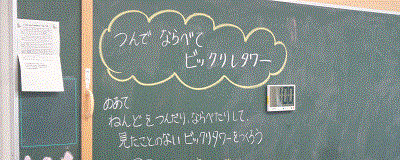 つんで ならべて
ビックリレタワー
めあて
ねんどをつんだり、ならべたりして、
見たことのない ビックリタワーをつくろう